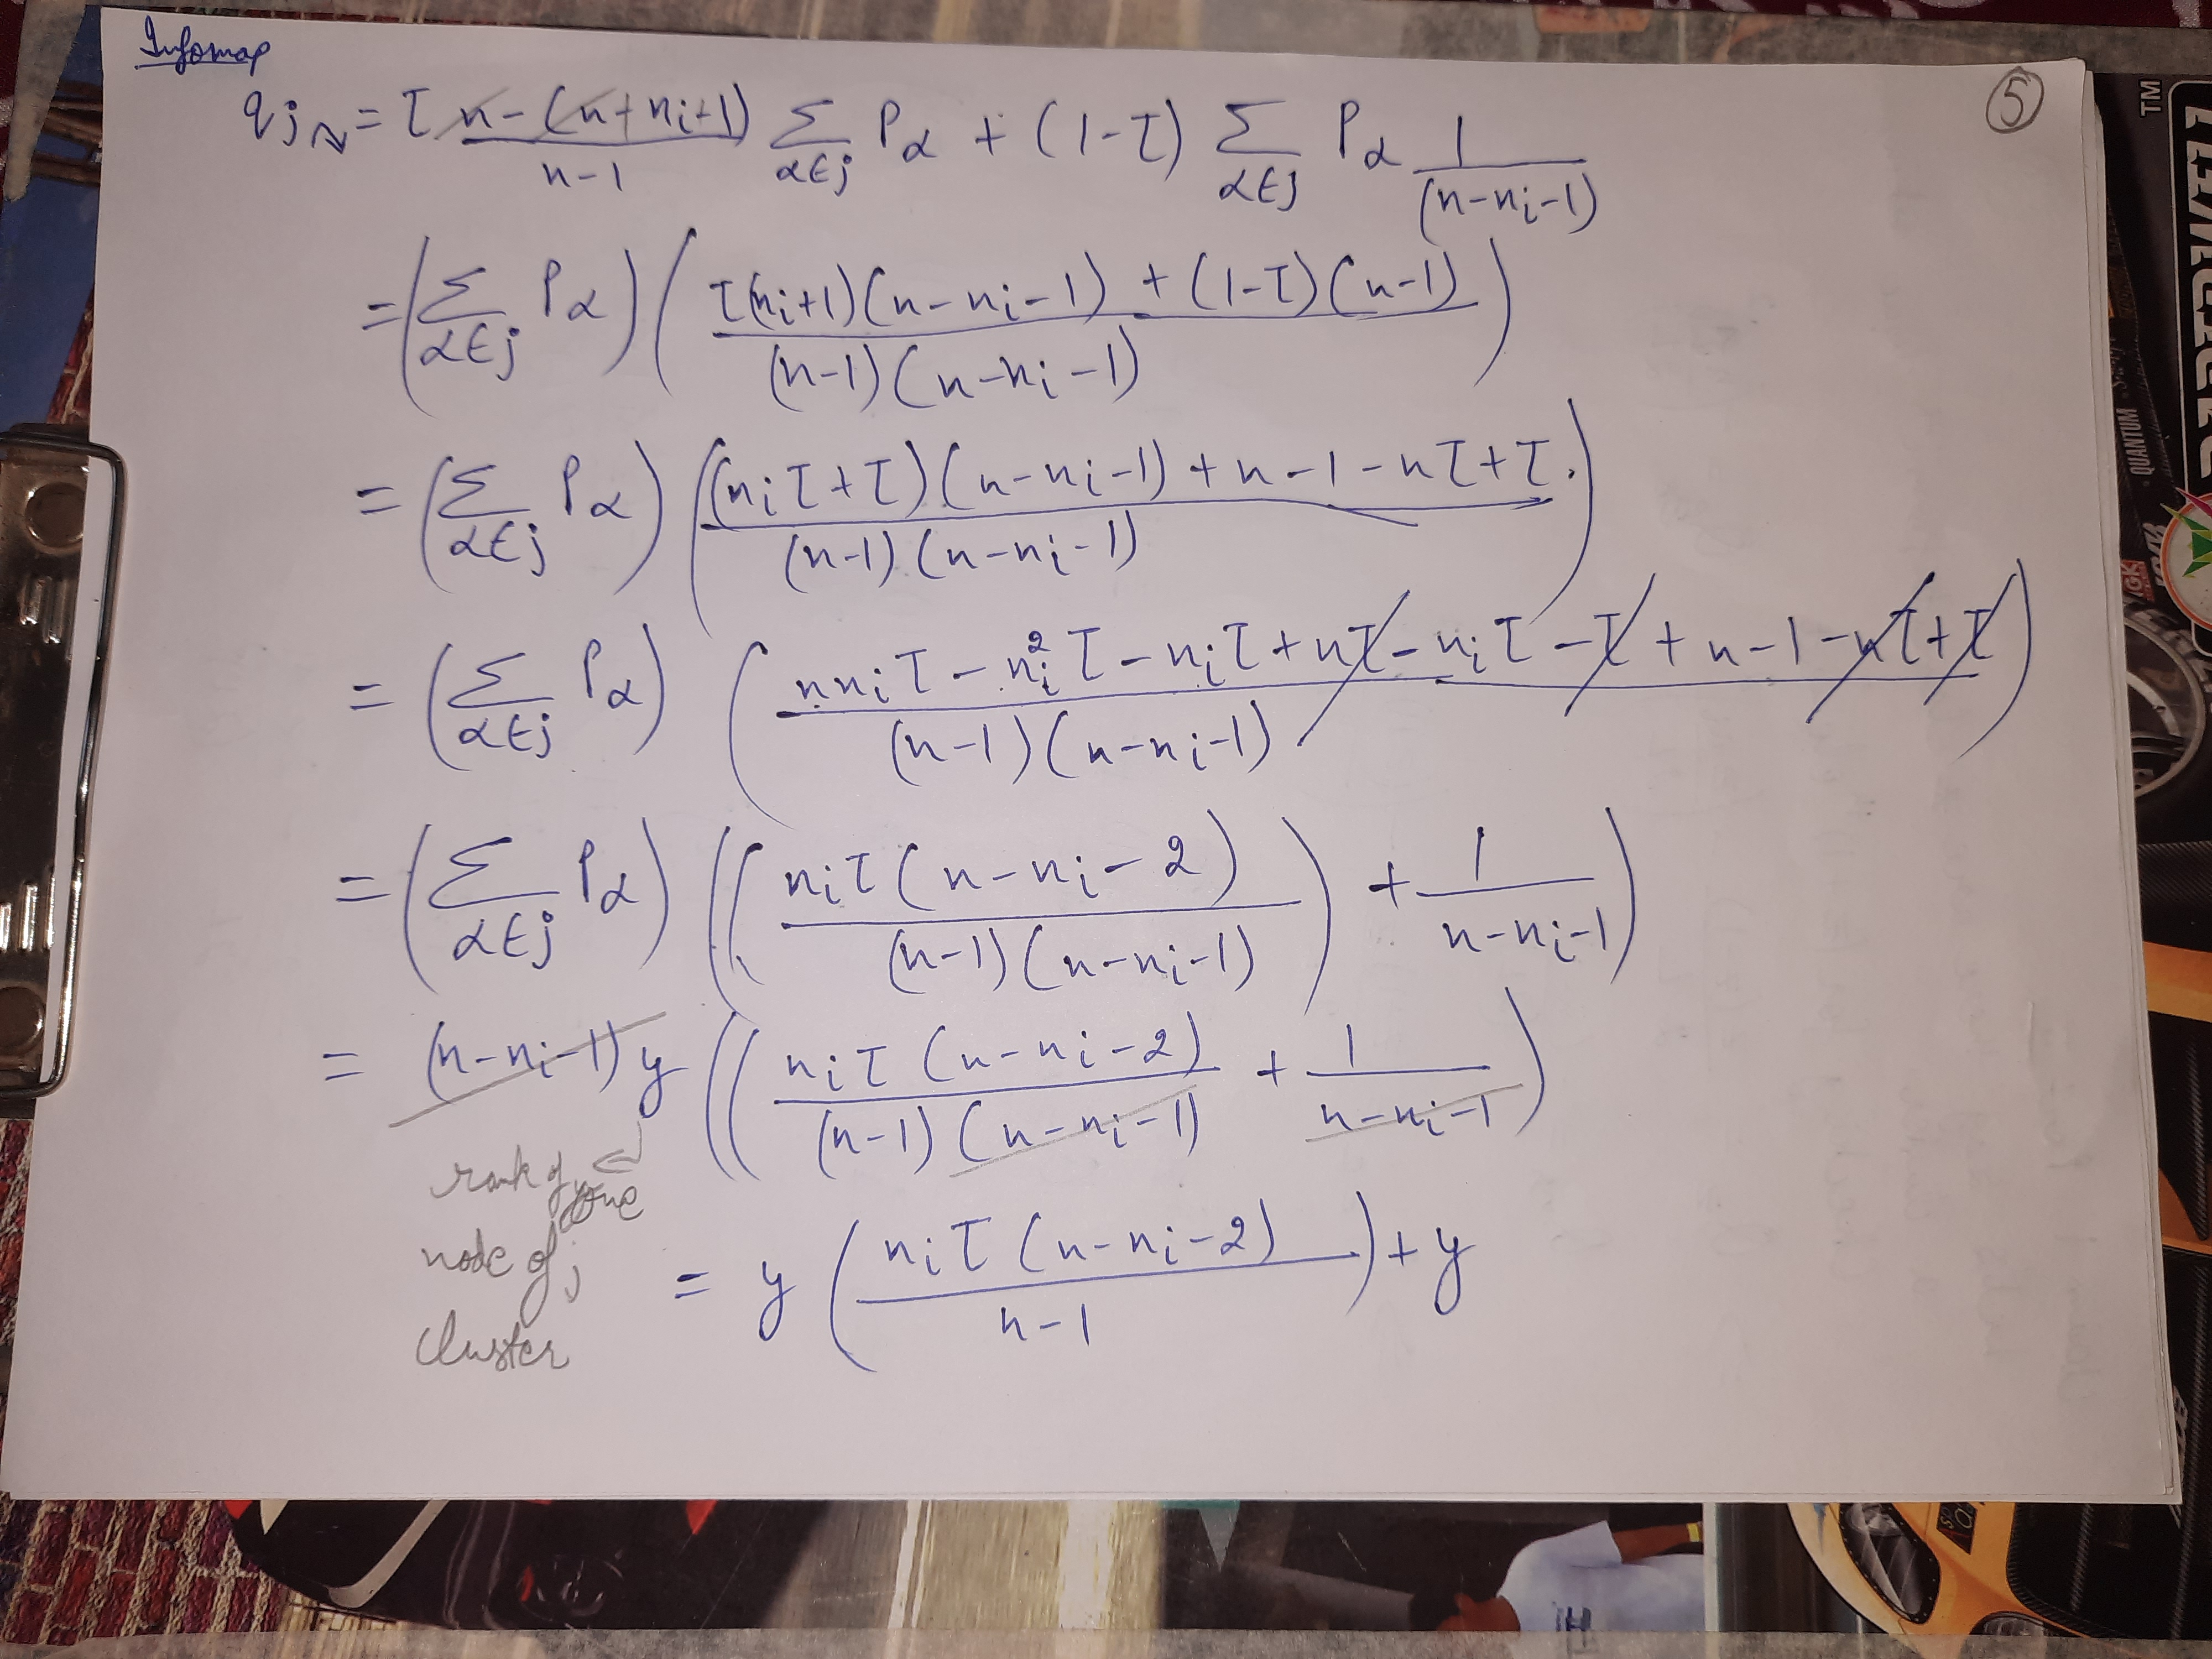 Infomap
⑤
qj↷ = τ n-(n+ni+1)/n-1 Σ_{α∈j} Pα + (1-τ) Σ_{α∈j} Pα 1/(n-ni-1)
= (Σ_{α∈j} Pα) (τ(ni+1)(n-ni-1) + (1-τ)(n-1) / (n-1)(n-ni-1))
= (Σ_{α∈j} Pα) ((niτ+τ)(n-ni-1) + n-1-nτ+τ. / (n-1)(n-ni-1))
= (Σ_{α∈j} Pα) (nniτ - ni²τ - niτ + nτ - niτ - τ + n-1-nτ+τ / (n-1)(n-ni-1))
= (Σ_{α∈j} Pα) ((niτ(n-ni-2) / (n-1)(n-ni-1)) + 1/n-ni-1)
= (n-ni-1) y ((niτ(n-ni-2) / (n-1)(n-ni-1) + 1/n-ni-1)
rank of one
node of j
cluster
= y (niτ(n-ni-2) / n-1) + y
TM
QUANTUM